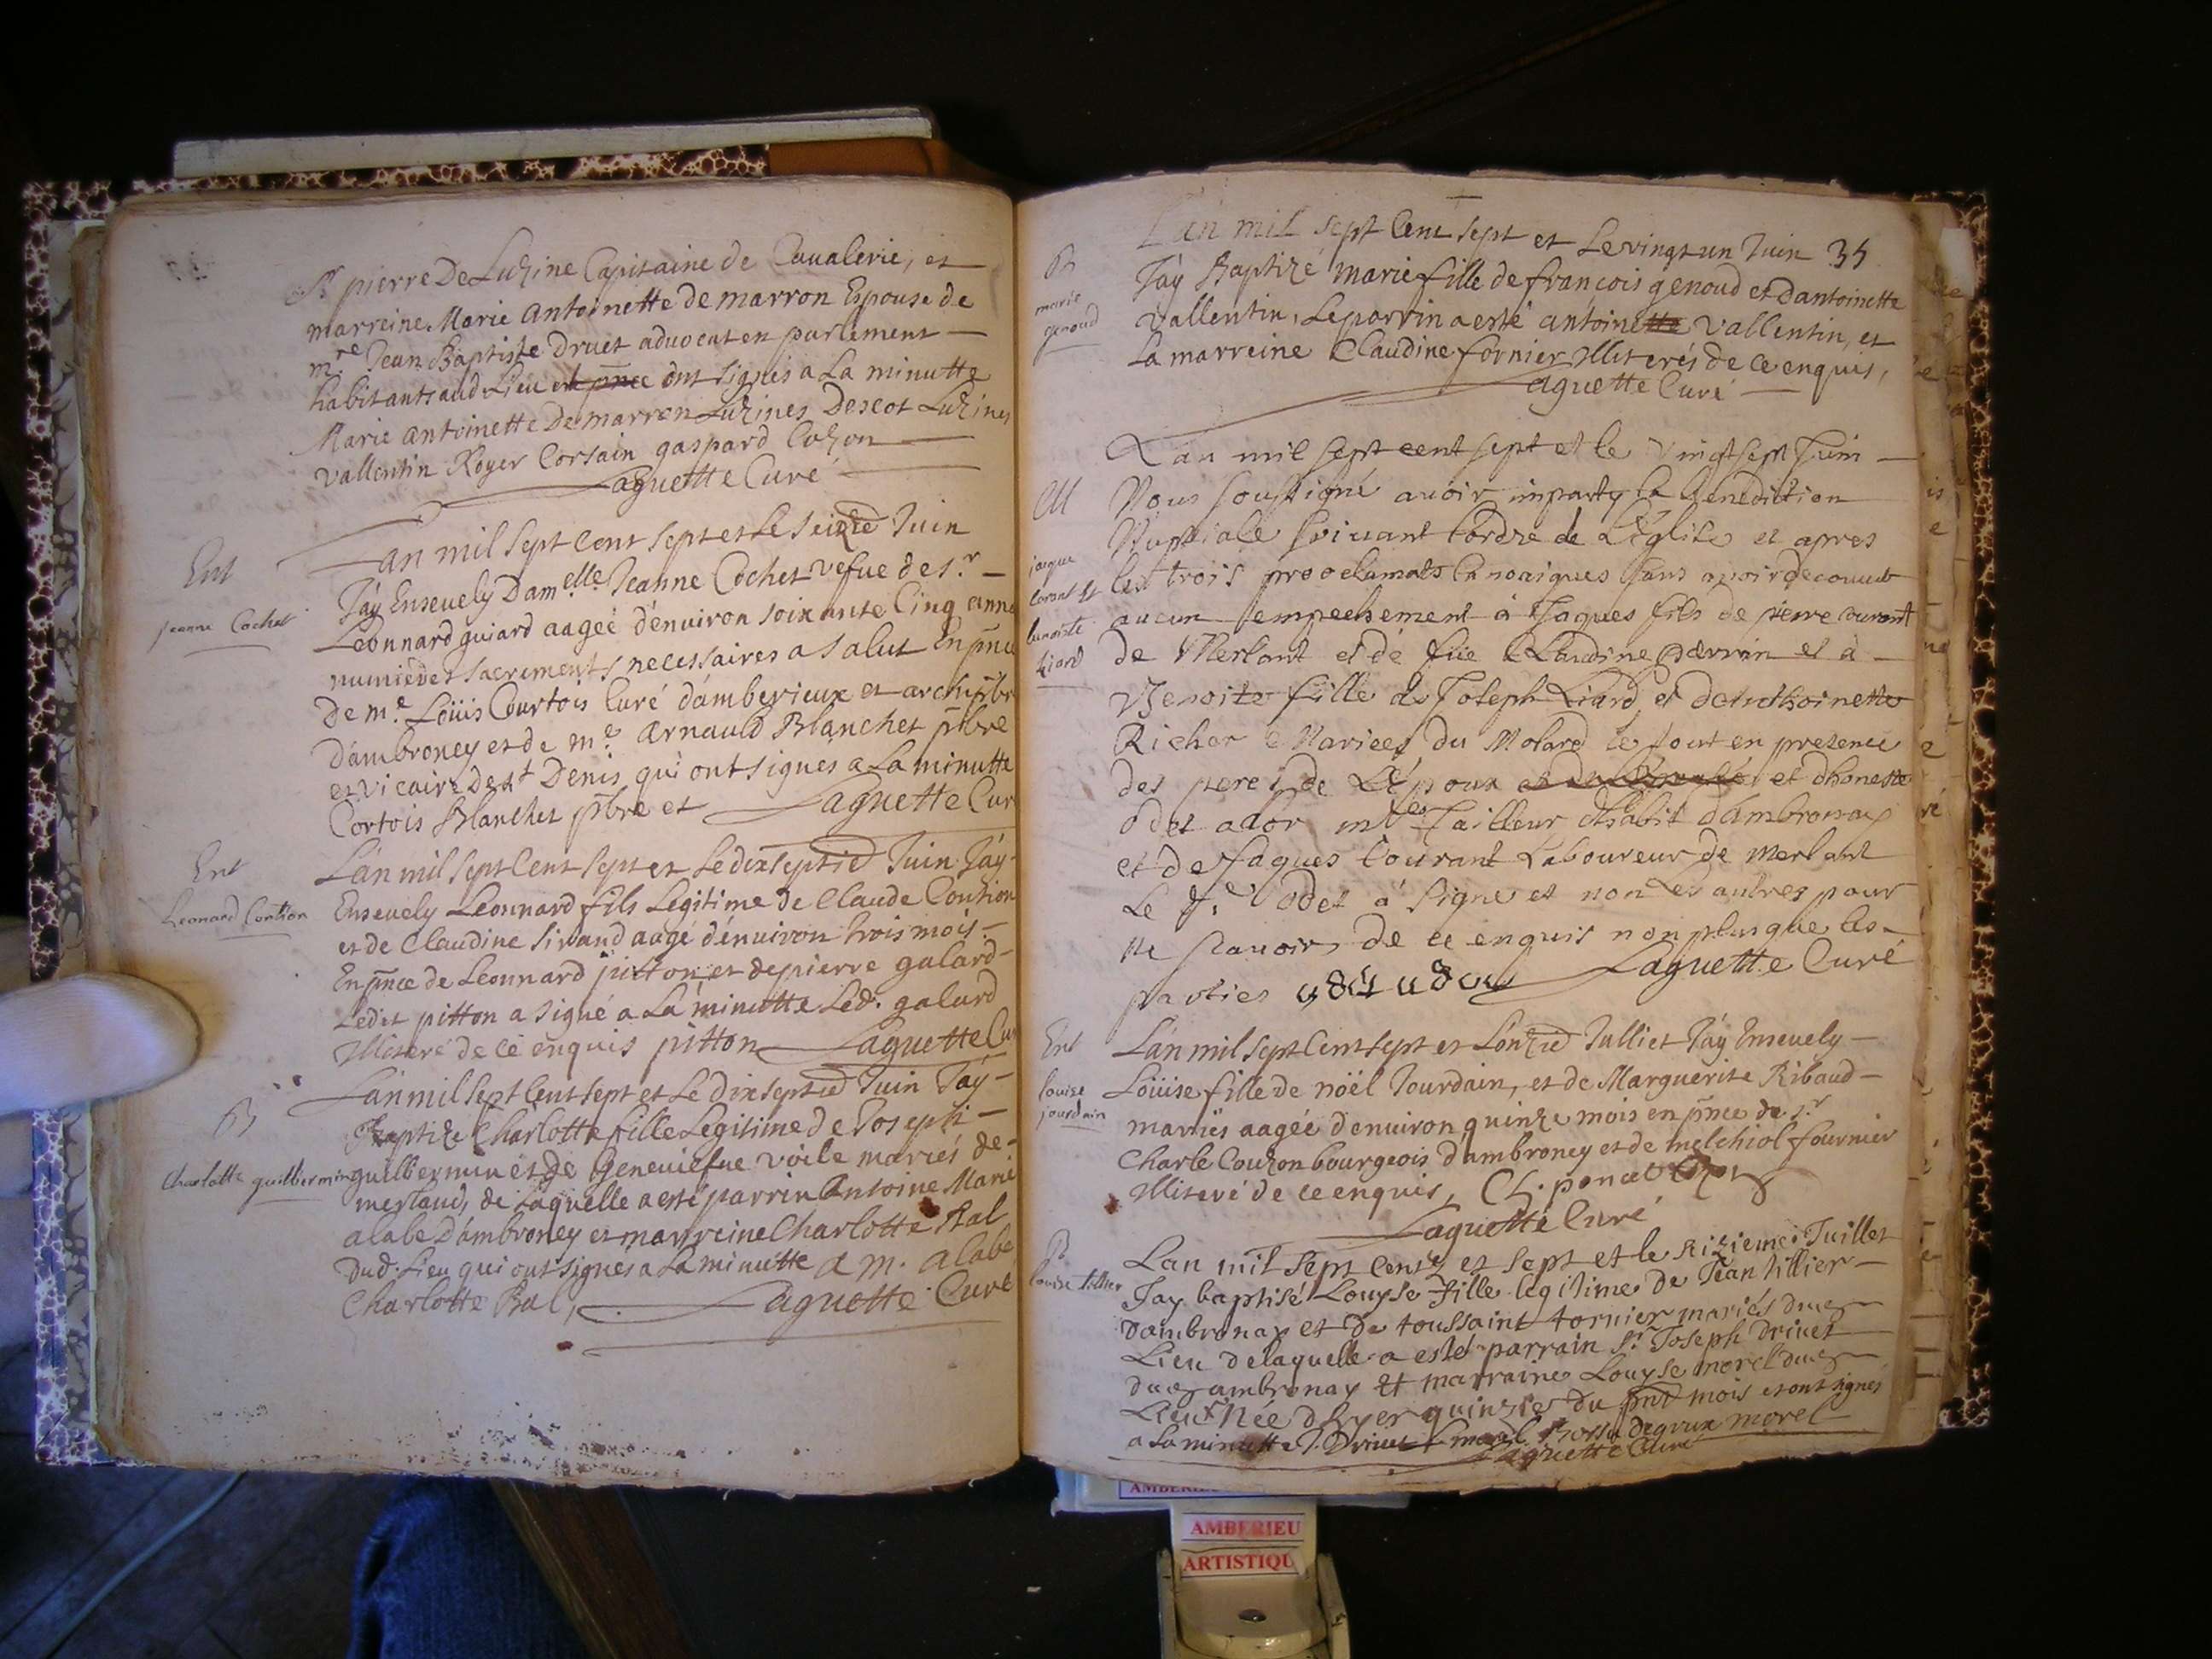 Sr pierre De Luzine Capitaine de Cavalerie, et
marreine Marie antoinette de marron Espouse de
mre Jean Baptiste Druet advocat en parlement
habitants aud Lieu ont signés a La minutte
Marie antoinette De marron Luzines Descot Luzines
vallentin Royer Corsain gaspard Cozon
Laguette Curé
Ent
Lan mil sept cent sept et le seizie Juin
Jeanne Cochet
Jáy Ensevely Damelle Jeanne Cochet vefue de sr
Léonnard guiard aagée dénuiron soixante Cinq anné
munie des sacrements necessaires a salut En pnce
De me Loüis Courtois Curé dámberieux et archipbr
dámbroney et de me arnauld Blanchet pbre
et vicaire de st Denis, qui ont signés a La minutte
Cortois Blanchet pbre et Laguette Cur
Ent
Lán mil sept Cent sept et Le dixseptie Juin Jáy
Leonard Contion
Ensevely Leonnard fils Legitime de Claude Contion
et de Claudine Sivand aagé dénuiron trois mois
En pnce de Leonnard pitton et de pierre galard
Ledit pitton a signé a La minutte Led. galard
Illiteré de cé enquis pitton Laguette Cu
B
Lán mil sept Cent sept et Le dixseptie Juin Jáy
Baptizé Charlotte fille Legitime de Joseph
Charlotte guillermin
guillermin et de Geneuiefue voile mariés de
merland, de Laquelle a esté parrin Antoine Marie
alabe D'ambroney et marreine Charlotte Bal
Dud. Lieu qui ont signés a La minutte A m. alabe
Charlotte Bal, Laguette Curé
Lán mil sept Cent sept et Le vingt un Juin 35
B
marie genoud
Jáy Baptizé marie fille de francois genoud et dantoinette
vallentin, Le parrin a esté antoine vallentin, et
La marreine Claudine fornier Illiterés de ce enquis,
Laguette Curé
Lan mil sept cent sept et le vingt sept Juin
M
Nous soussigné avoir imparty la benediction
Nuptiale suivant lordre de LEglise et apres
jaque
les trois proclamats Canoniques sans avoir decouvert
aucun empechement à Jaques fils de pierre
benoiste
liard
de Merlant et dé fue Claudine perrin et à
Benoite fille de Joseph Liard, et de
Richar Mariees du Molard le tout en presence
des peres de Lépoux et dhonette
odet ador mtre Tailleur dhabit dambronay
et de Jaques Courant Laboureur de Merlant
Le Sr odet a signe et non Les autres pour
ne scavoir, de ce enquis non plus que les
parties Laguette Curé
Ent
Lán mil sept Cent sept et Lonzie Julliet Jáy Ensevely
louise jourdain
Loüise fille de noël Jourdain, et de Marguerite Ribaud
mariés aagée denuiron quinze mois en pnce de sr
Charle Couzon bourgeois d'ambroney et de melchiol fournier
Illiteré de ce enquis, Ch. poncet
Laguette Curé
B
Lan mil sept cents et sept et le sizieme Juillet
louise tillier
Jay baptisé Louyse fille legitime de Jean tillier
dambronay et de toussaint tornier mariés dud
Lieu de laquelle a esté parrain sr Joseph Drivet
dud ambronay et marraine Louyse morel dud
Lieu Née dhyer quinzie du pnt mois et ont signés
a La minutte J. Drivet morel
Laguette Curé
AMBERIEU
ARTISTIQU